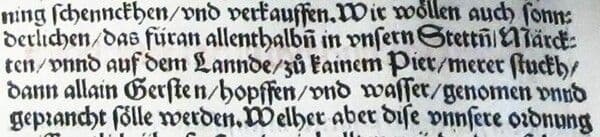 ning schennckhen/vnd verkauffen. Wir wöllen auch sonn⸗
derlichen/das füran allenthalbn̄ in vnsern Stettn̄/Märck⸗
ten/vnnd auf dem Lannde/zů kainem Pier/merer stuckh/
dann allain Gersten/hopffen/vnd wasser/genomen vnnd
gepraucht sölle werden. Welher aber dise vnnsere ordnung